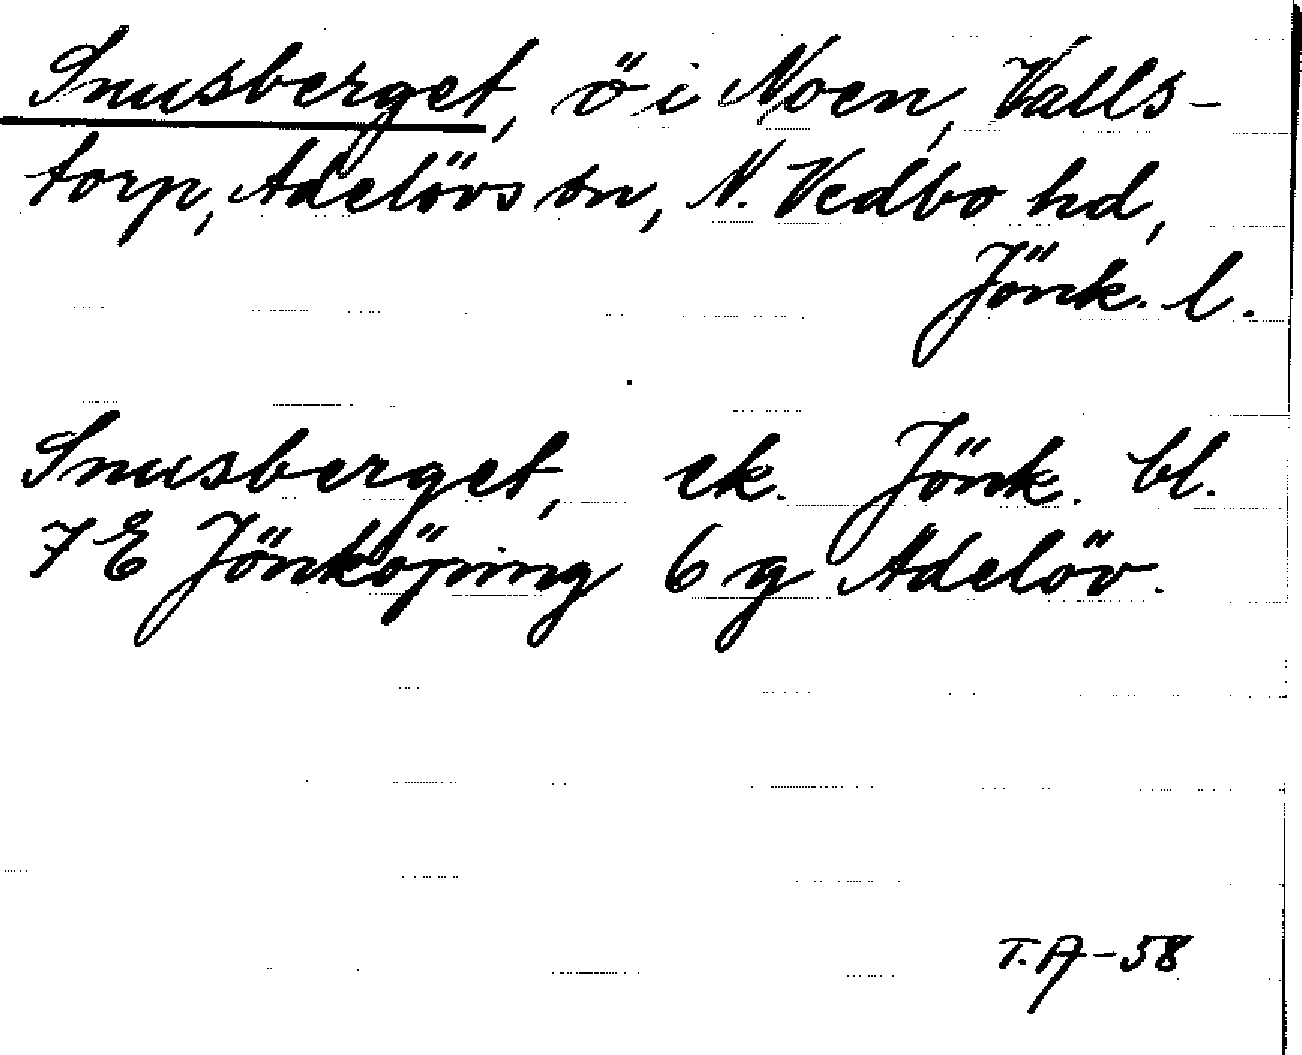 Snusberget, ö i Noen, Valls-
torp, Adelövs sn, N. Vedbo hd,
Jönk. l.
Snusberget, ek. Jönk. bl.
7 E Jönköping 6 g Adelöv.
T. A-58